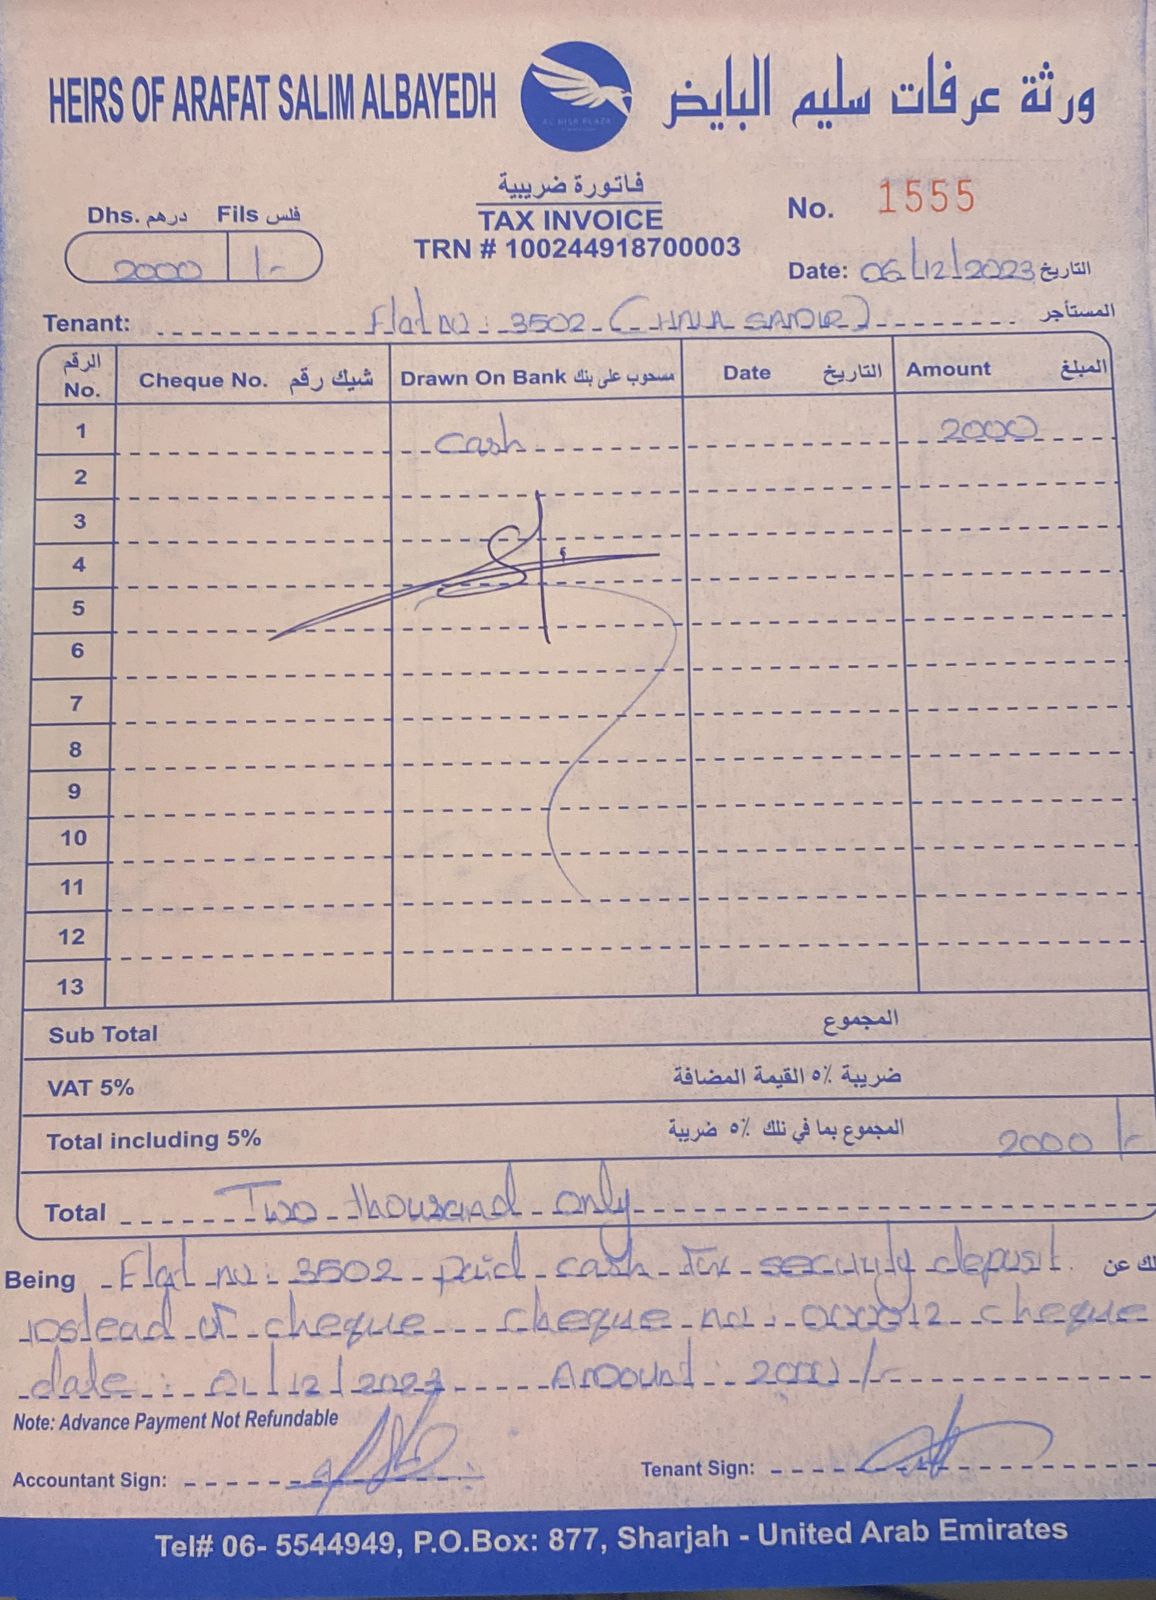 HEIRS OF ARAFAT SALIM ALBAYEDH
AL HISN PLAZA
ورثة عرفات سليم البايض
فاتورة ضريبية
TAX INVOICE
TRN # 100244918700003
Dhs. درهم Fils فلس
2000 /-
No. 1555
Date: 06/12/2023 التاريخ
Tenant: Flat no: 3502 ( المستأجر
الرقم No. Cheque No. شيك رقم Drawn On Bank مسحوب على بنك Date التاريخ Amount المبلغ
1 cash 2000
2
3
4
5
6
7
8
9
10
11
12
13
Sub Total المجموع
VAT 5% ضريبة ٥٪ القيمة المضافة
Total including 5% المجموع بما في تلك ٥٪ ضريبة 2000 /-
Total Two thousand only
Being Flat no: 3502 paid cash for security deposit
instead of cheque cheque no: 000012 cheque
date: 01/12/2023 Amount: 2000/-
Note: Advance Payment Not Refundable
Accountant Sign: Tenant Sign:
Tel# 06- 5544949, P.O.Box: 877, Sharjah - United Arab Emirates